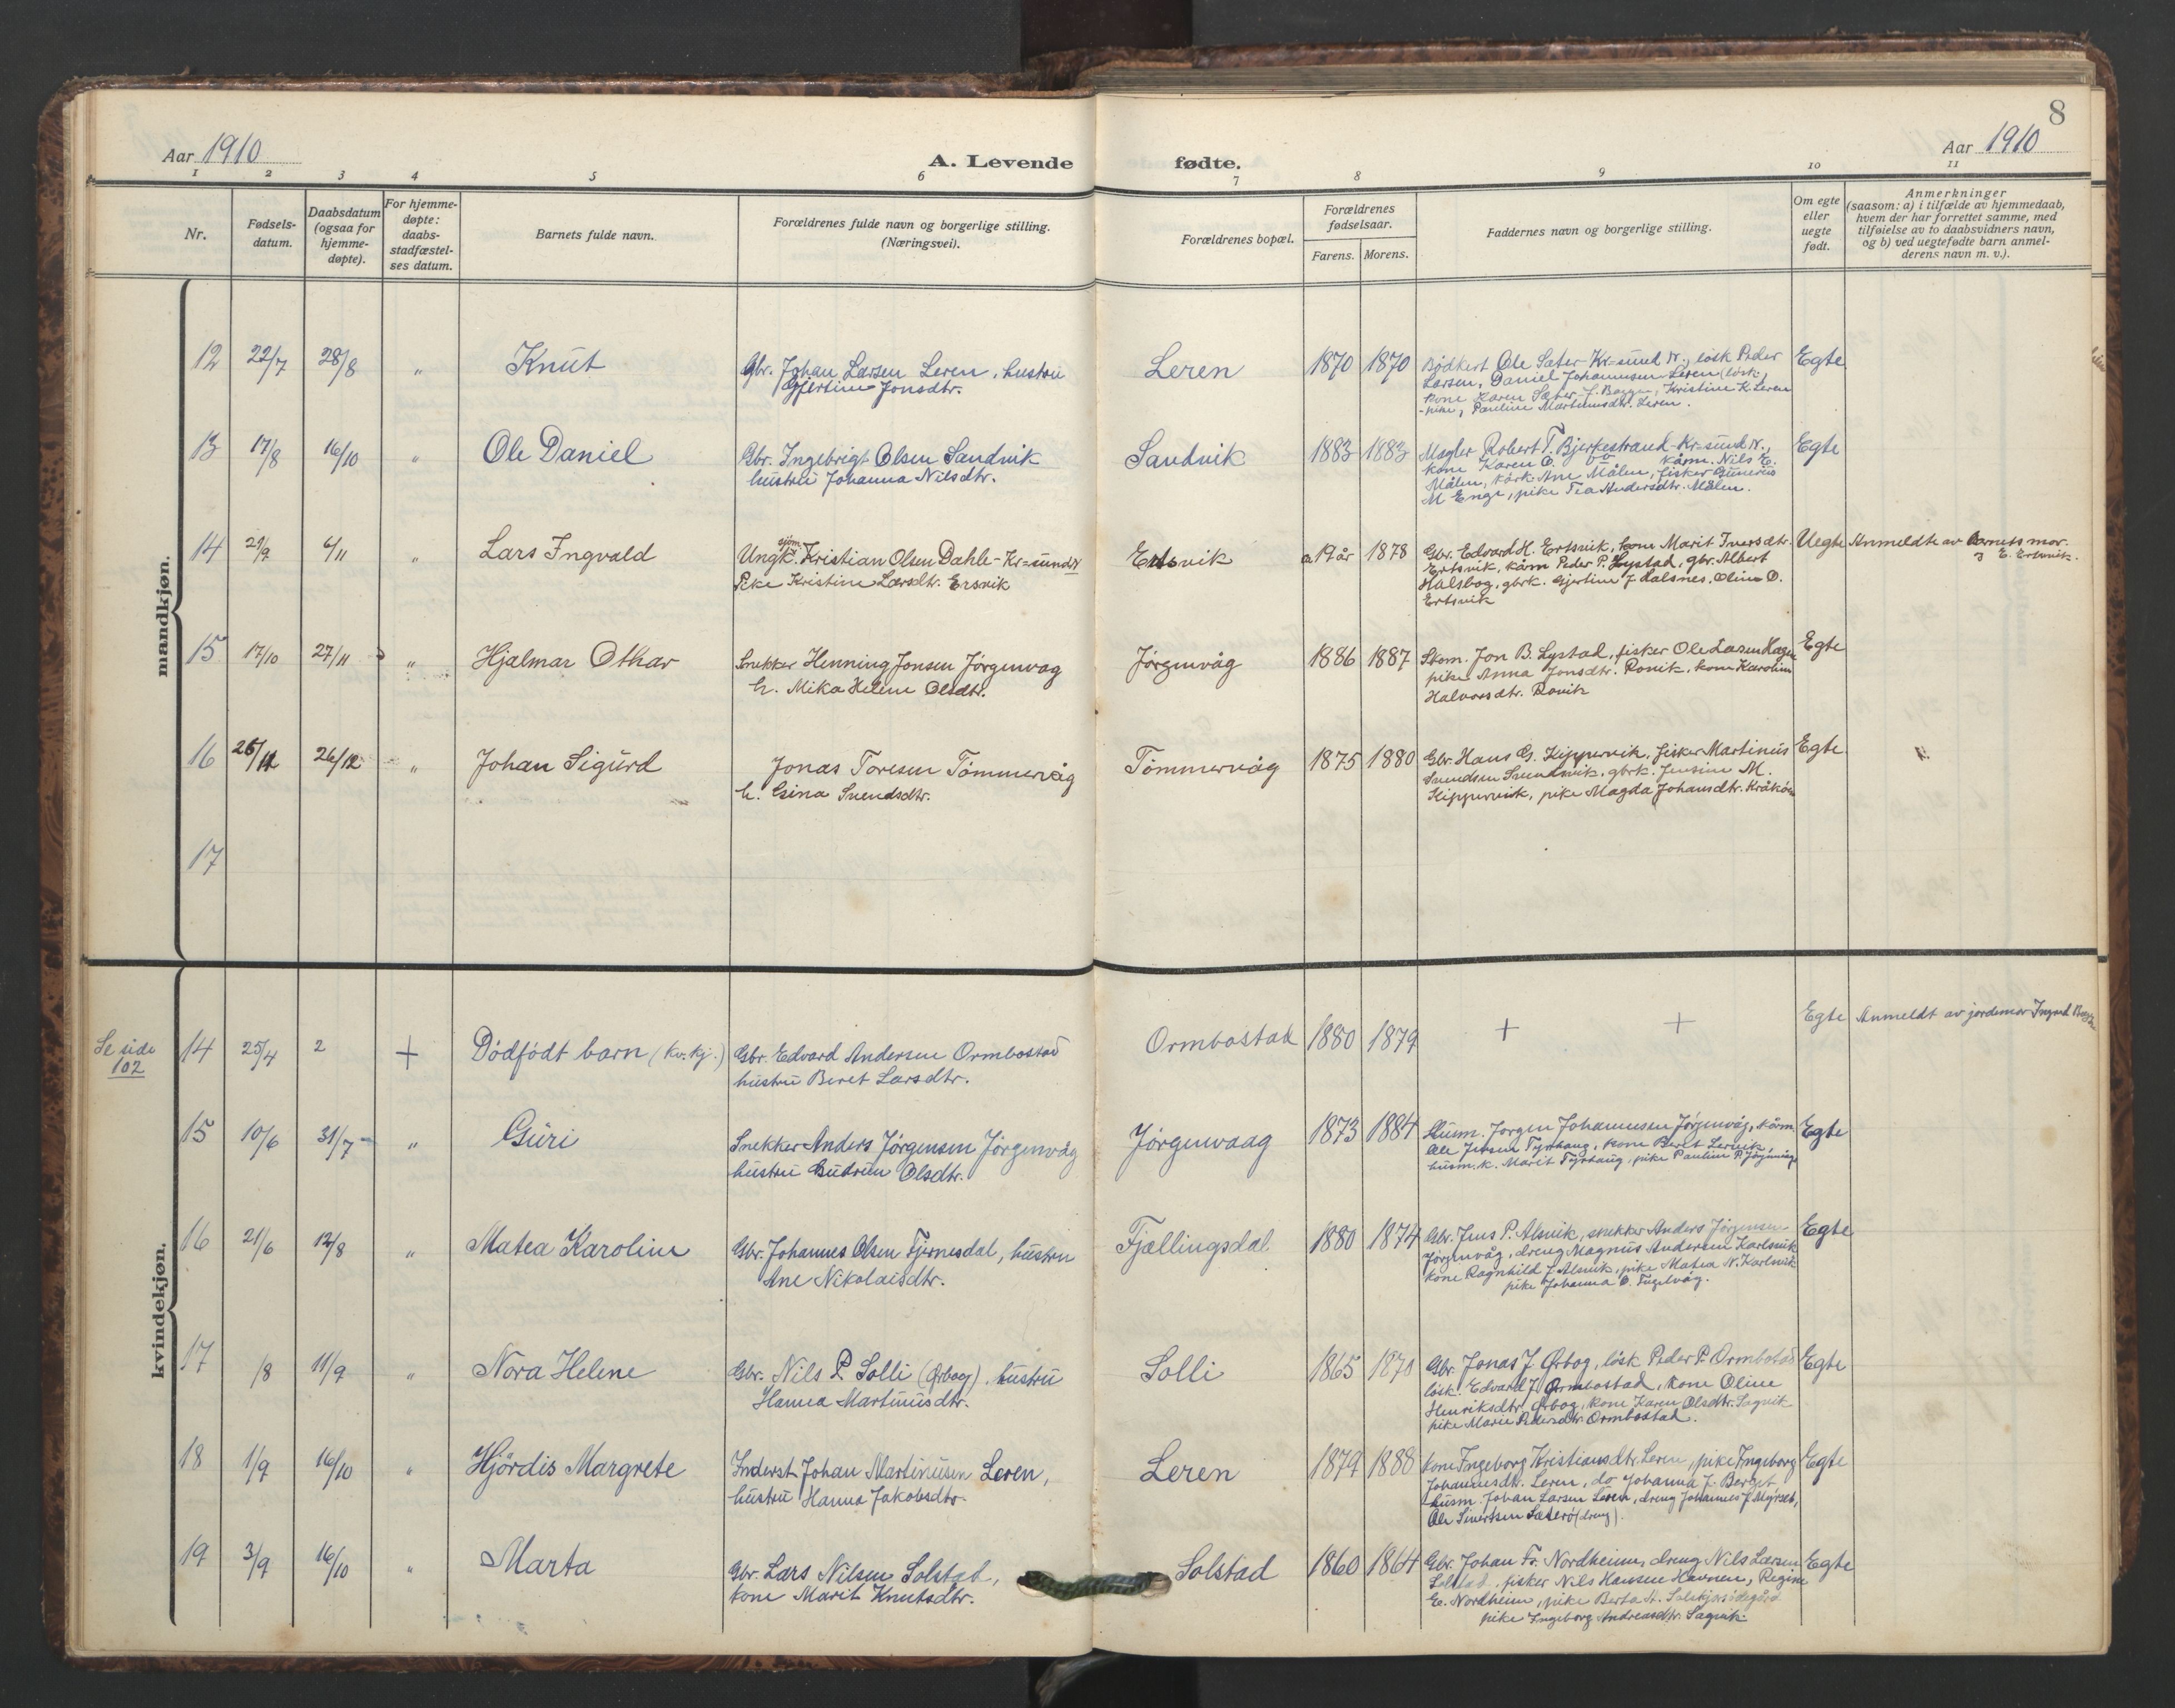 8
Aar 1910
A. Levende
fødte.
Aar 1910
1 2 3 4 5 6 7 8 9 10 11
Nr.
Fødsels-
datum.
Daabsdatum
(ogsaa for
hjemme-
døpte).
For hjemme-
døpte:
daabs-
stadfæstel-
ses datum.
Barnets fulde navn.
Forældrenes fulde navn og borgerlige stilling.
(Næringsvei).
Forældrenes bopæl.
Forældrenes
fødselsaar.
Farens. Morens.
Faddernes navn og borgerlige stilling.
Om egte
eller
uegte
født.
Anmerkninger
(saasom: a) i tilfælde av hjemmedaab,
hvem der har forrettet samme, med
tilføielse av to daabsvidners navn,
og b) ved uegtefødte barn anmel-
derens navn m. v.).
mandkjøn.
12 22/7 28/8 " Knut
Gbr. Johan Larsen Leren, hustru
Gjertine Jonsdtr.
Leren 1870 1870
Bødkert Ole Sæter Kr-sund N., løsk Peder
Larsen, Daniel Johannesen Leren (løsk,
kone Karen Sæter, Kristine K Leren
-pike, Pauline Martinusdtr. Leren.
Egte
13 17/8 16/10 " Ole Daniel
Gbr. Ingebrigt Olsen Sandvik
hustru Johanna Nilsdtr.
Sandvik 1883 1883
Mægler Robert T. Bjerkestrand Kr-sund N.,
kone Karen O. do kårm. Nils E.
Målen, kårk. Ane Målen, fisker Gunerius
M Enge, pike Tea Andersdtr. Målen.
Egte
14 29/9 6/11 " Lars Ingvald
Ungk. sjøm. Kristian Olsen Dahle - Kr-sund N
Pike Kristine Larsdtr. Ersvik
Ertsvik a 19 år 1878
Gbr. Edvard H. Ertsvik, kone Marit Iversdtr.
Ertsvik, kårm Peder P. Hystad, gbr. Albert
Halsbog, gbrk. Gjertine J Halsnes, Oline O.
Ertsvik
Uegte
Anmeldte av Barnets mor.
E. Ertsvik.
15 17/10 27/11 " Hjalmar Othar
Snekker Henning Jonsen Jørgenvag
h. Mika Helene Olsdtr.
Jørgenvåg 1886 1887
Skom. Jon B. Lystad, fisker Ole Lasen Hagen
pike Anna Jonsdtr. Rovik, kone Karoline
Halvorsdtr. Rovik
Egte
16 25/11 26/12 " Johan Sigurd
Jonas Toresen Tømmervåg
h. Gina Svendsdtr.
Tømmervåg 1875 1880
Gbr. Hans G. Kippervik, fisker Martinus
Svendsen Svendsvik, gbrk. Jensine M.
Kippervik, pike Magda Johansdtr.
Egte
17
kvindekjøn.
Se side
102
14 25/4 2 + Dødfødt barn (kv.kj.)
Gbr. Edvard Andersen Ormbostad
hustru Beret Larsdtr.
Ormbostad 1880 1879 + +
Egte
Anmeldt av jordemor
15 10/6 31/7 " Guri
Snekker Anders Jørgensen Jørgenvåg
hustru Gudrun Olsdtr.
Jørgenvaag 1873 1884
Husm. Jørgen Johannesen Jørgenvåg, kårm.
Ole Jensen Tyrhaug, kone Beret Lervik,
husm.k. Marit Tyrhaug, pike Pauline P. Jørgenvåg
Egte
16 21/6 12/8 " Matea Karoline
Gbr. Johannes Olsen Fjernesdal, hustru
Ane Nikolaisdtr.
Fjællingsdal 1880 1874
Gbr. Jens P. Alsvik, snekker Anders Jørgensen
Jørgenvåg, dreng Magnus Andersen Karlsvik
kone Ragnhild J Alsvik, pike Matea N. Karlsvik
pike Johanna O. Fugelvåg.
Egte
17 /8 11/9 " Nora Helene
Gbr. Nils P. Solli (Ørbog), hustru
Hanna Martinusdtr.
Solli 1865 1870
Gbr. Jonas J. Ørbog, løsk Peder P. Ormbostad
løsk. Edvard J. Ormbostad, kone Oline
Henriksdtr. Ørbog, kone Karen Olsdtr. Sagvik
pike Marie Pedersdtr. Ormbostad.
Egte
18 1/9 16/10 " Hjørdis Margrete
Inderst Johan Martinusen Leren,
hustru Hanna Jakobsdtr.
Leren 1879 1888
kone Ingeborg Kristiansdtr. Leren, pike Ingeborg
Johannesdtr. Leren, do Johanna J. Berget
husm. Johan Larsen Leren, dreng Johannes J Myrset,
Ole Sivertsen Sæterø (dreng).
Egte
19 3/9 16/10 " Marta
Gbr. Lars Nilsen Solstad,
kone Marit Knutsdtr.
Solstad 1860 1864
Gbr. Johan Fr. Nordheim, dreng Nils Larsen
Solstad, fisker Nils Hansen Havnen, Regine
E. Nordheim, pike Berta H.
pike Ingeborg Andreasdtr. Sagvik.
Egte